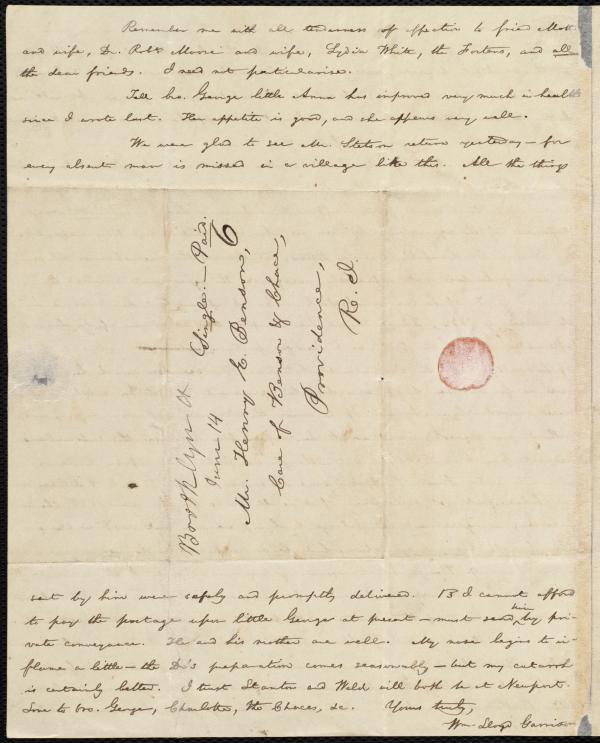 Remember me with all tenderness of affection to friend Mott
and wife, Dr. Robt Moore and wife, Lydia White, the Fortens, and all
the dear friends. I need not particularise.
Tell bro. George little Anna has improved very much in health
since I wrote last. Her appetite is good, and she appears very well.
We were glad to see Mr. Stetson return yesterday — for
every absent man is missed in a village like this. All the things
Brooklyn Ct
June 14
Single. — Paid.
6
Mr. Henry E. Benson,
Care of Benson & Chace,
Providence,
R. I.
sent by him were safely and promptly delivered. I cannot afford
to pay the postage upon little George at present — must send him by pri-
vate conveyance. He and his mother are well. My nose begins to in-
flame a little — the Dr's preparation comes seasonably — but my catarrh
is certainly better. I trust Stanton and Weld will both be at Newport.
Love to bro. George, Charlotte, the Chaces, &c. Yours truly,
Wm. Lloyd Garrison